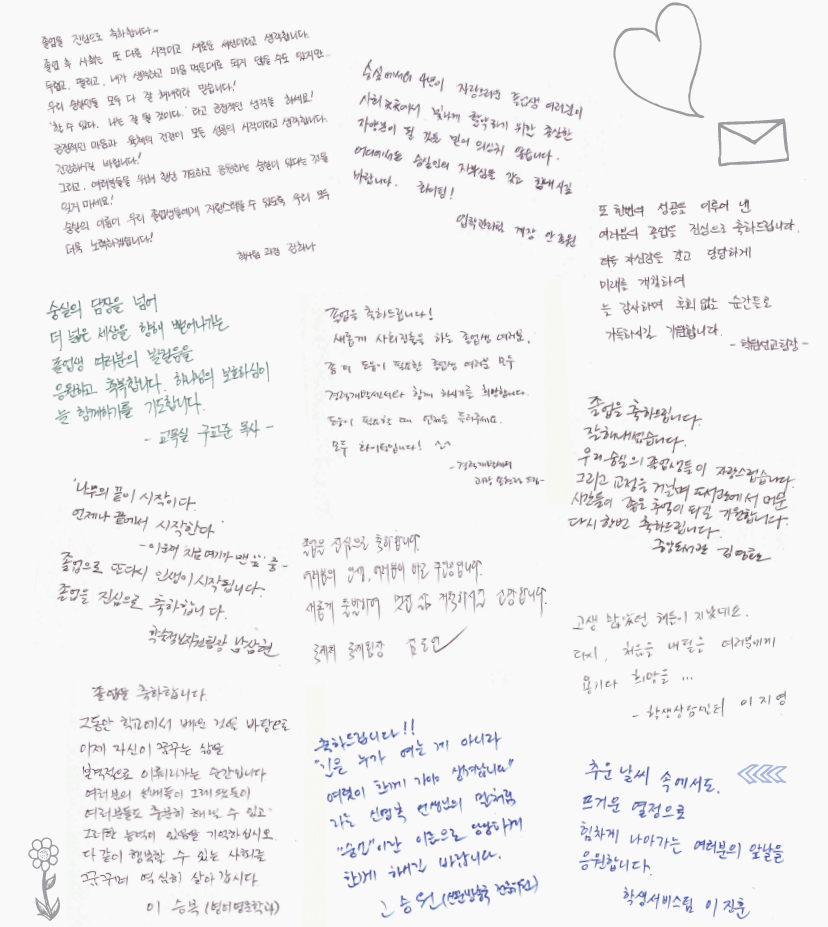 졸업을 진심으로 축하합니다~
졸업 후 사회는 또 다른 시작이고 새로운 세상이라고 생각합니다.
두렵고, 떨리고, 내가 생각하고 마음 먹은대로 되지 않을 수도 있지만...
우리 숭실인들 모두 다 잘 해내리라 믿습니다!
'할 수 있다. 나는 잘 될 것이다.' 라고 긍정적인 생각을 하세요!
긍정적인 마음과 육체의 건강이 모든 성공의 시작이라고 생각합니다.
건강하시길 바랍니다!
그리고, 여러분들을 위해 항상 기도하고 응원하는 숭실이 있다는 것을
잊지 마세요!
숭실의 이름이 우리 졸업생들에게 자랑스러울 수 있도록 우리 모두
더욱 노력하겠습니다!
과장 강하나
숭실에서의 4년이 자랑스러운 졸업생 여러분이
사회 곳곳에서 빛나게 활약하기 위한 충실한
자양분이 될 것을 믿어 의심치 않습니다.
어디에서든 숭실인의 자부심을 갖고 힘내시길
바랍니다. 화이팅!
입학관리팀 계장 안효원
또 한번의 성공을 이루어 낸
여러분의 졸업을 진심으로 축하드립니다.
더욱 자신감을 갖고 당당하게
미래를 개척하며
늘 감사하며 후회 없는 순간들로
가득하시길 기원합니다.
- 학원선교팀장 -
숭실의 담장을 넘어
더 넓은 세상을 향해 뻗어나가는
졸업생 여러분의 발걸음을
응원하고 축복합니다. 하나님의 보호하심이
늘 함께하기를 기도합니다.
- 교목실 구교준 목사 -
졸업을 축하드립니다!
새롭게 사회진출을 하는 졸업생 여러분,
좀 더 도움이 필요한 졸업생 여러분 모두
경력개발센터와 함께 하시기를 희망합니다.
도움이 필요할 때 언제든 두드려주세요.
모두 화이팅입니다! ^^
- 경력개발센터
과장
졸업을 축하드립니다.
잘해내셨습니다.
우리 숭실의 졸업생들이 자랑스럽습니다.
그리고 교정을 거닐며 도서관에서 머문
시간들이 좋은 추억이 되길 기원합니다.
다시 한번 축하드립니다.
중앙도서관 김영환
'나무의 끝이 시작이다.
언제나 끝에서 시작한다'
- 이문재 지금 여기가 맨 앞 중 -
졸업으로 또다시 인생이 시작됩니다.
졸업을 진심으로 축하합니다.
학술정보지원팀장 남상현
졸업을 진심으로 축하합니다.
여러분의 인생, 여러분이 바로 주인공입니다.
새롭게 출발하여 멋진 삶 개척하시길 소망합니다.
고생 많았던 허들이 지났네요.
다시, 처음을 내딛을 여러분에게
용기와 희망을 ...
- 학생상담센터 이지영
졸업을 축하합니다.
그동안 학교에서 배운 것을 바탕으로
이제 자신이 꿈꾸는 삶을
본격적으로 이뤄나가는 순간입니다
여러분의 선배들이 그래왔듯이
여러분들도 충분히 해낼 수 있고
그러한 능력이 있음을 기억하십시오.
다 같이 행복할 수 있는 사회를
꿈꾸며 열심히 살아갑시다.
이 승복 (영어영문학과)
축하드립니다!!
"길을 누가 여는 게 아니라
여럿이 함께 가야 생겨납니다"
라는 신영복 선생님의 말처럼
"숭실"이란 이름으로 당당하게
함께 해내길 바랍니다.
추운 날씨 속에서도,
뜨거운 열정으로
힘차게 나아가는 여러분의 앞날을
응원합니다.
학생서비스팀 이진훈